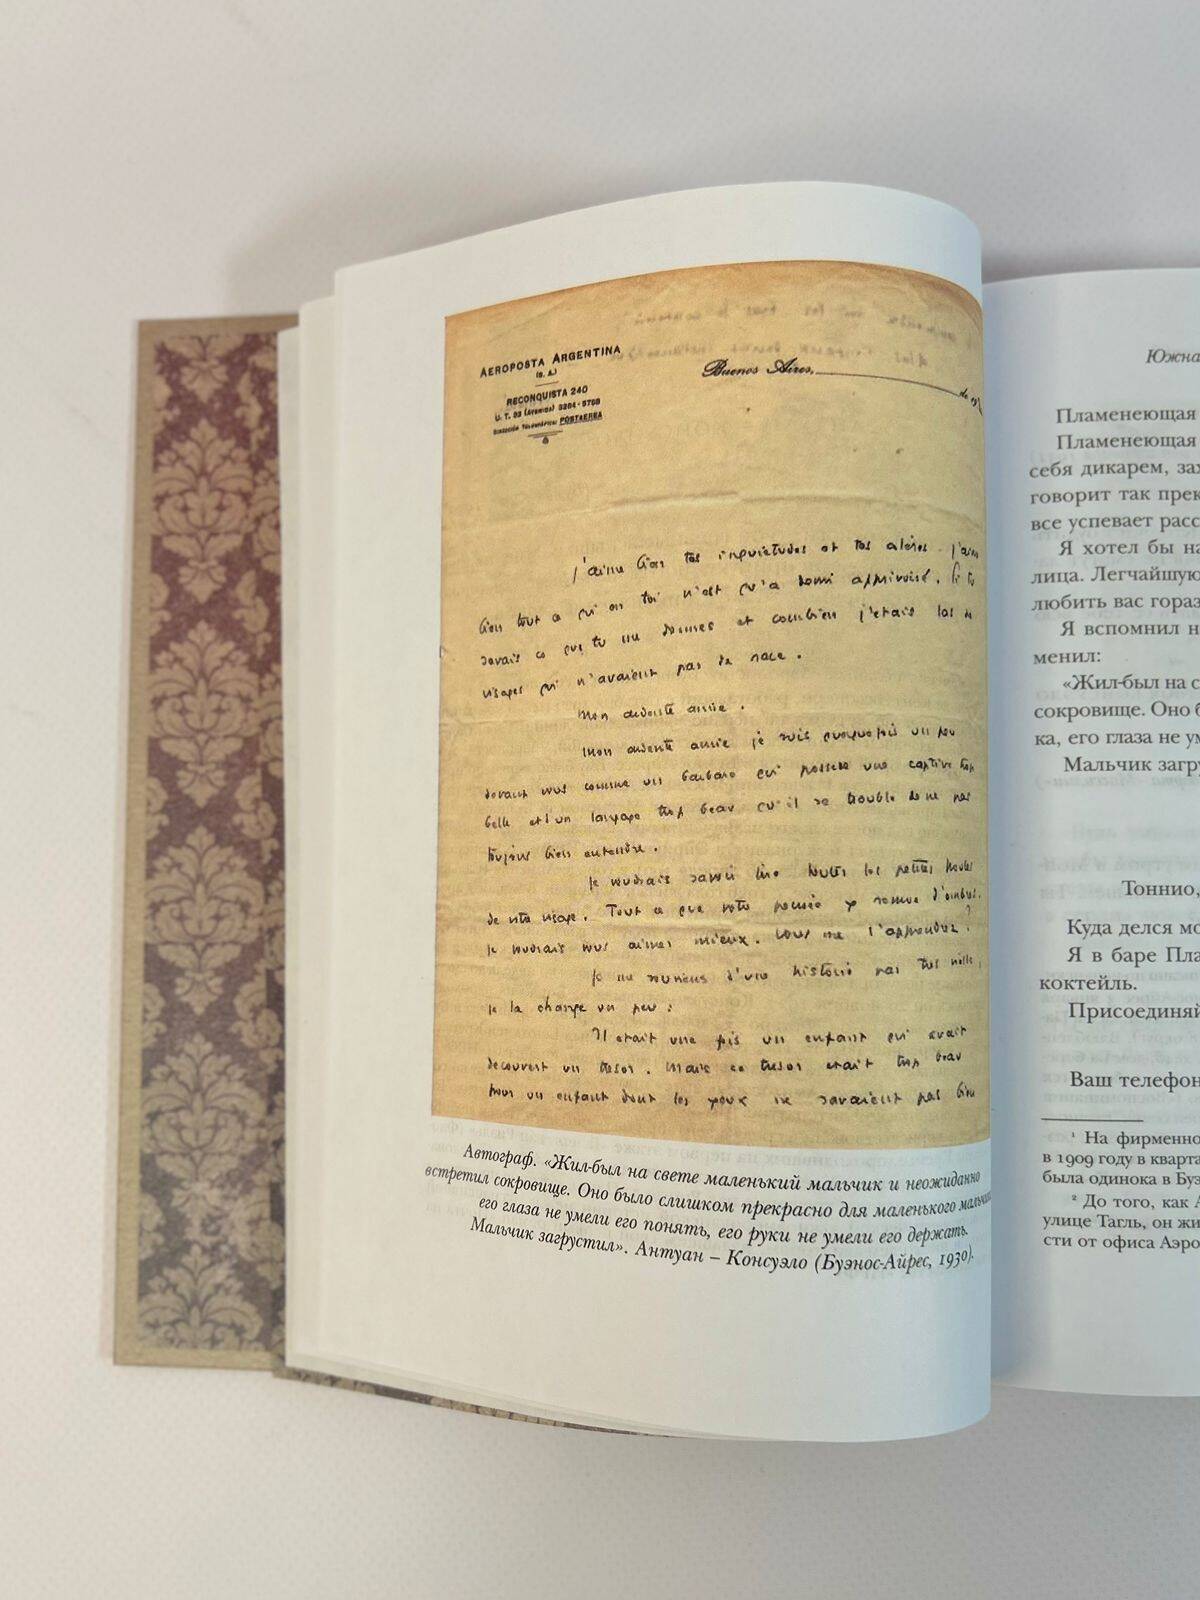 AEROPOSTA ARGENTINA
(S. A.)
RECONQUISTA 240
U. T. 33 (AVENIDA) 3264 - 5768
DIRECCIÓN TELEGRÁFICA: POSTAEREA
Buenos Aires, de 19
j'aime bien tes inquiétudes et tes colères. j'aime
bien tout ce qui en toi n'est qu'à demi apprivoisé. Si tu
savais ce que tu me donnes et combien j'étais las de
visages qui n'avaient pas de race.
Mon ardente amie.
Mon ardente amie je suis quelquefois un peu
devant vous comme un barbare qui possède une captive trop
belle et d'un langage trop beau qu'il se trouble de ne pas
toujours bien entendre.
Je voudrais savoir lire toutes les petites
de votre visage. Tout ce que votre pensée y remue d'ombres.
Je voudrais vous aimer mieux. Vous me l'apprendrez?
Je me souviens d'une histoire pas très vieille,
je la change un peu:
Il était une fois un enfant qui avait
découvert un trésor. Mais ce trésor était trop beau
pour un enfant dont les yeux ne savaient pas bien
Автограф. «Жил-был на свете маленький мальчик и неожиданно
встретил сокровище. Оно было слишком прекрасно для маленького мальчика,
его глаза не умели его понять, его руки не умели его держать.
Мальчик загрустил». Антуан – Консуэло (Буэнос-Айрес, 1930).
Южна
Пламенеющая
Пламенеющая
себя дикарем, зах
говорит так прек
все успевает расс
Я хотел бы на
лица. Легчайшую
любить вас гораз
Я вспомнил н
менил:
«Жил-был на с
сокровище. Оно б
ка, его глаза не ум
Мальчик загру
Тоннио,
Куда делся мо
Я в баре Пла
коктейль.
Присоединяй
Ваш телефон
¹ На фирменно
в 1909 году в кварта
была одинока в Буэ
² До того, как А
улице Тагль, он жи
сти от офиса Аэро